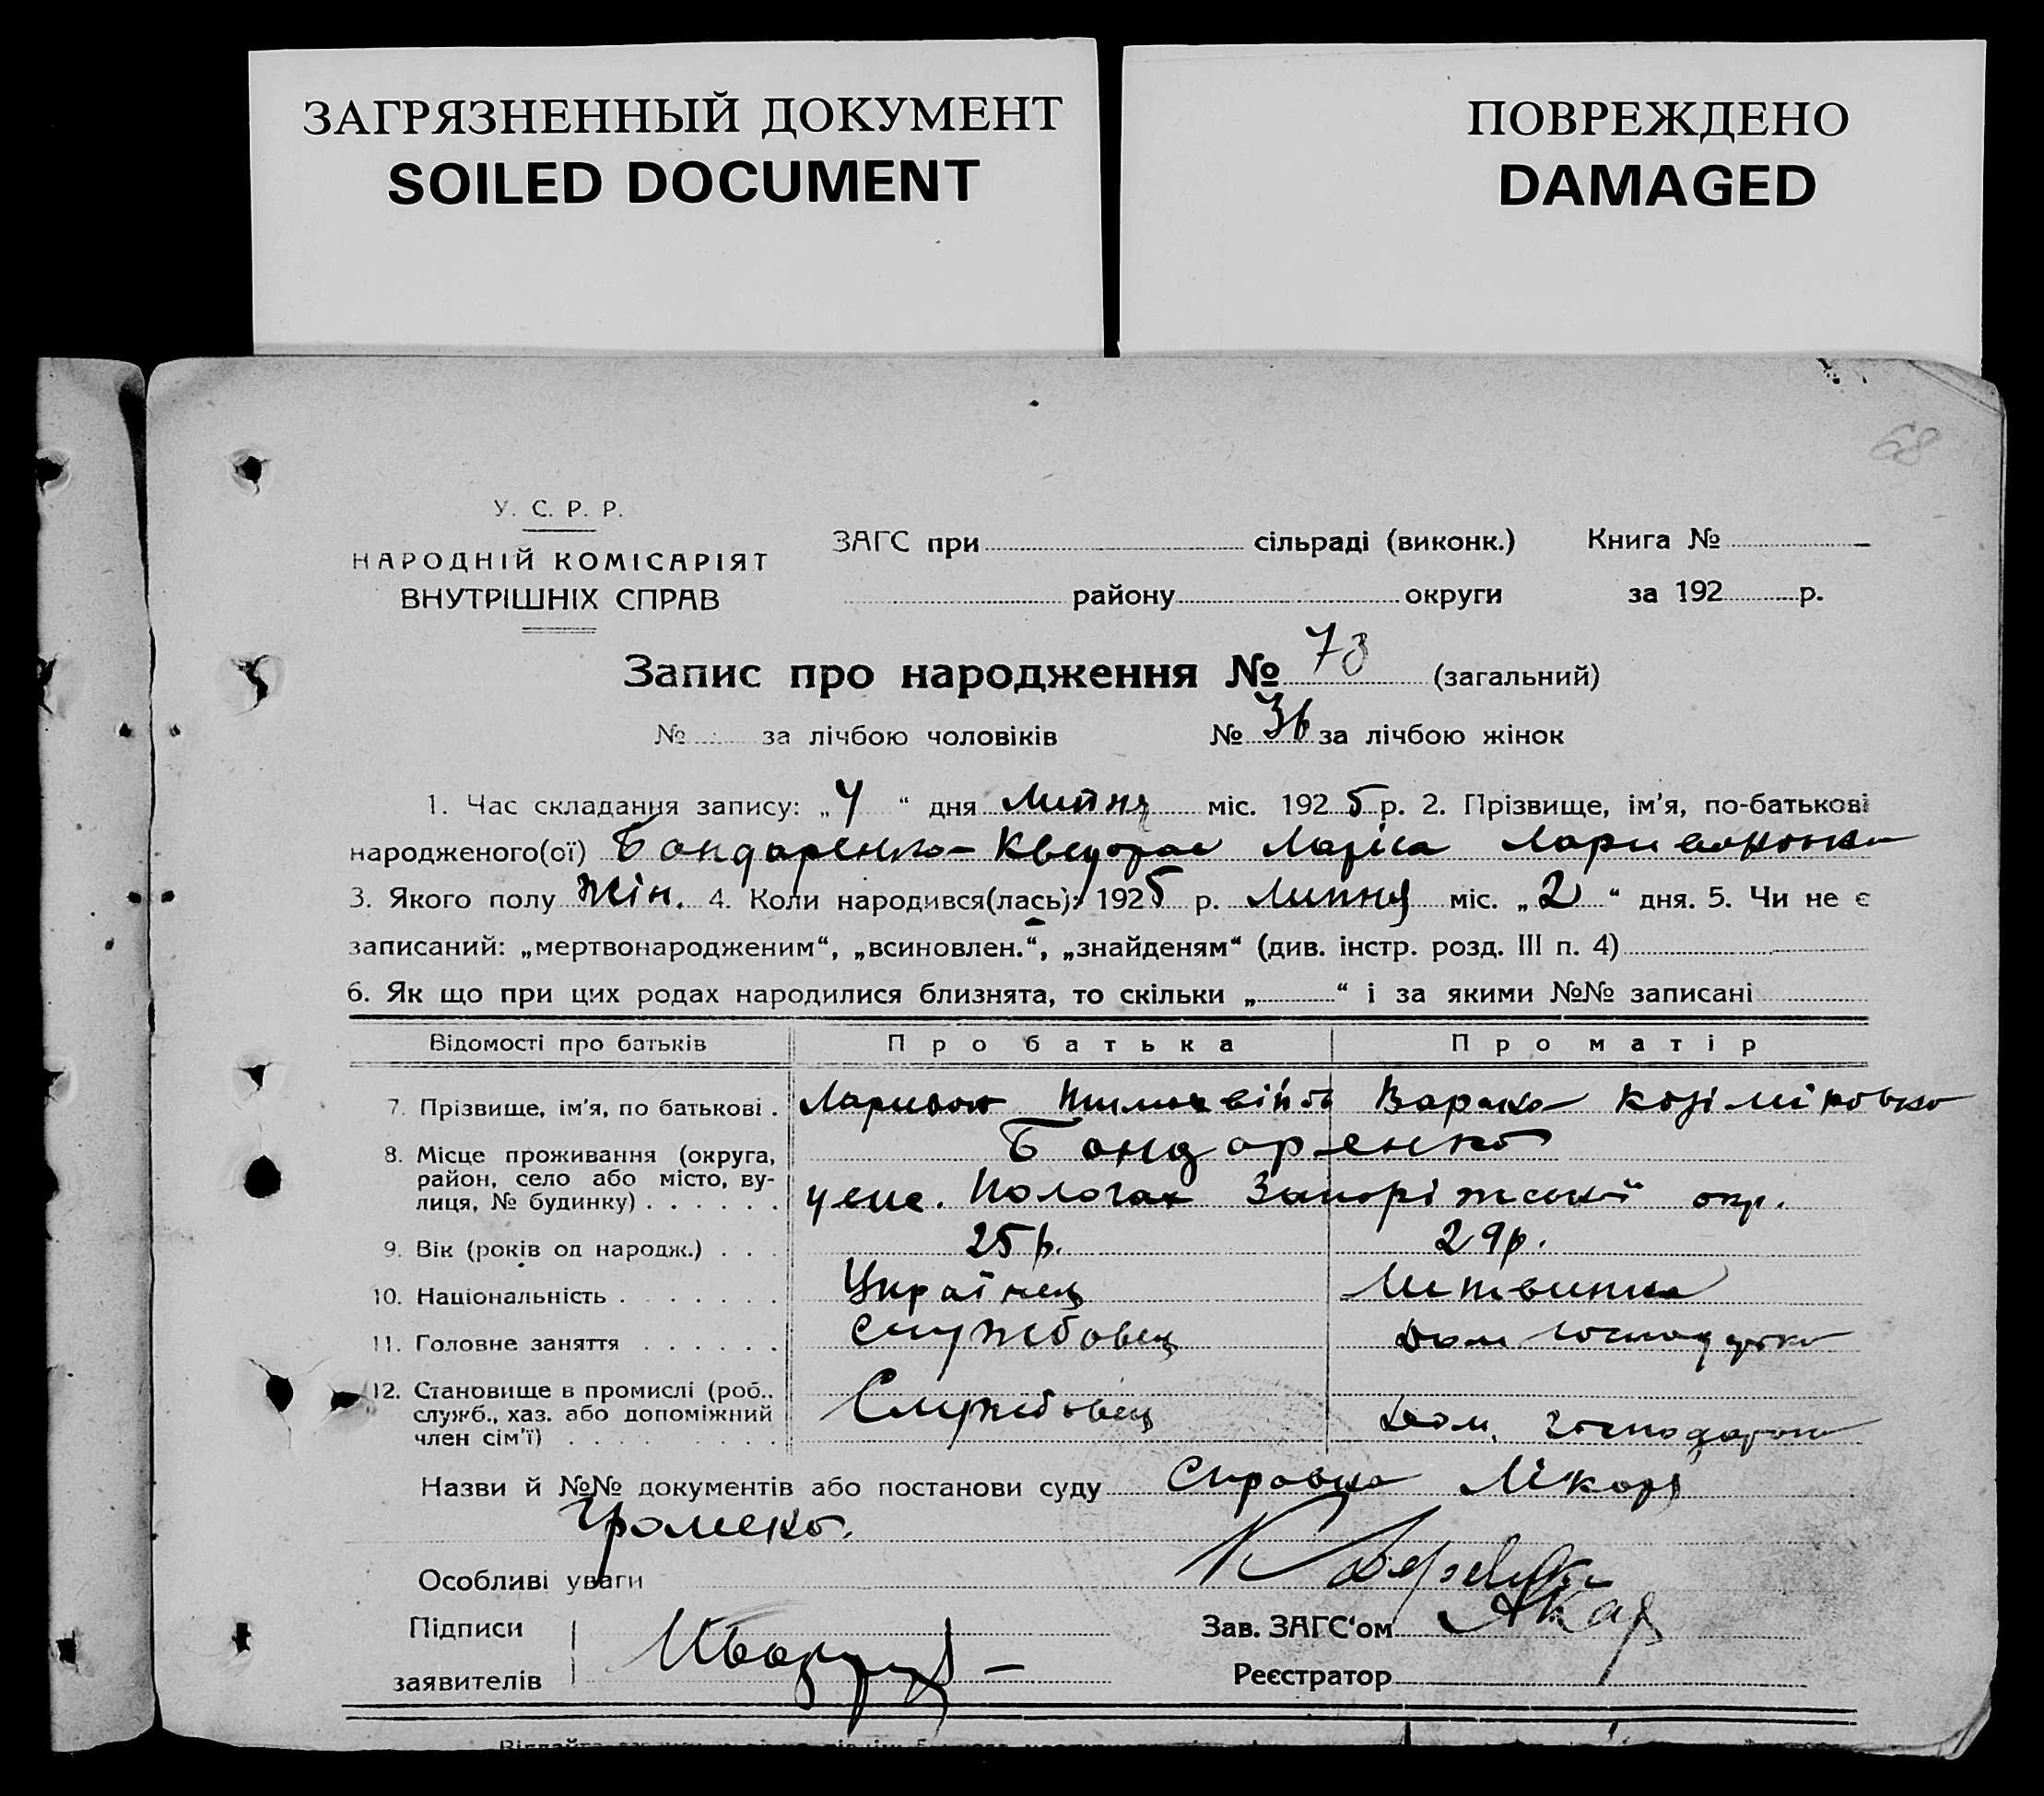 ЗАГРЯЗНЕННЫЙ ДОКУМЕНТ
SOILED DOCUMENT
ПОВРЕЖДЕНО
DAMAGED
68
У. С. Р. Р.
НАРОДНІЙ КОМІСАРІЯТ
ВНУТРІШНІХ СПРАВ
ЗАГС при сільраді (виконк.) Книга №
району округи за 192 р.
Запис про народження № 73 (загальний)
№ за лічбою чоловіків № 36 за лічбою жінок
1. Час складання запису: „4“ дня Липня міс. 1925 р. 2. Прізвище, ім'я, по-батькові
народженого(ої) Бондаренко- Лариса
3. Якого полу Жін. 4. Коли народився(лась): 1925 р. Липня міс. „2“ дня. 5. Чи не є
записаний: „мертвонародженим“, „всиновлен.“, „знайденям“ (див. інстр. розд. III п. 4)
6. Як що при цих родах народилися близнята, то скільки „ “ і за якими №№ записані
Відомості про батьків Про батька Про матір
7. Прізвище, ім'я, по батькові . Ларивон Варвара
Бондаренко
8. Місце проживання (округа,
район, село або місто, ву-
лиця, № будинку) . . . . . . Пологах Запоріжської окр.
9. Вік (років од народж.) . . . 25 р. 29 р.
10. Національність . . . . . . . Українець Литвинка
11. Головне заняття . . . . . . Службовець Дом господарка
12. Становище в промислі (роб..
служб., хаз. або допоміжний
член сім'ї) . . . . . . . . . Службовець Дом. господарка
Назви й №№ документів або постанови суду Справка Лікаря
Громеко.
Особливі уваги
Підписи
заявителів
Зав. ЗАГС'ом
Реєстратор